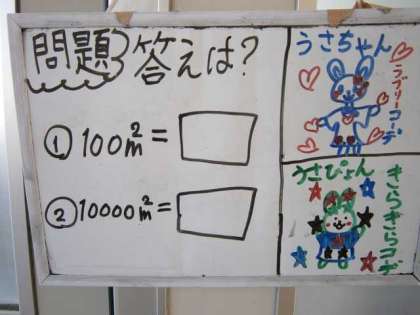 問題 答えは?
① 100m²=
② 10000m²=
うさちゃん
ラブリーコーデ
うさぴょん
きらきらコーデ